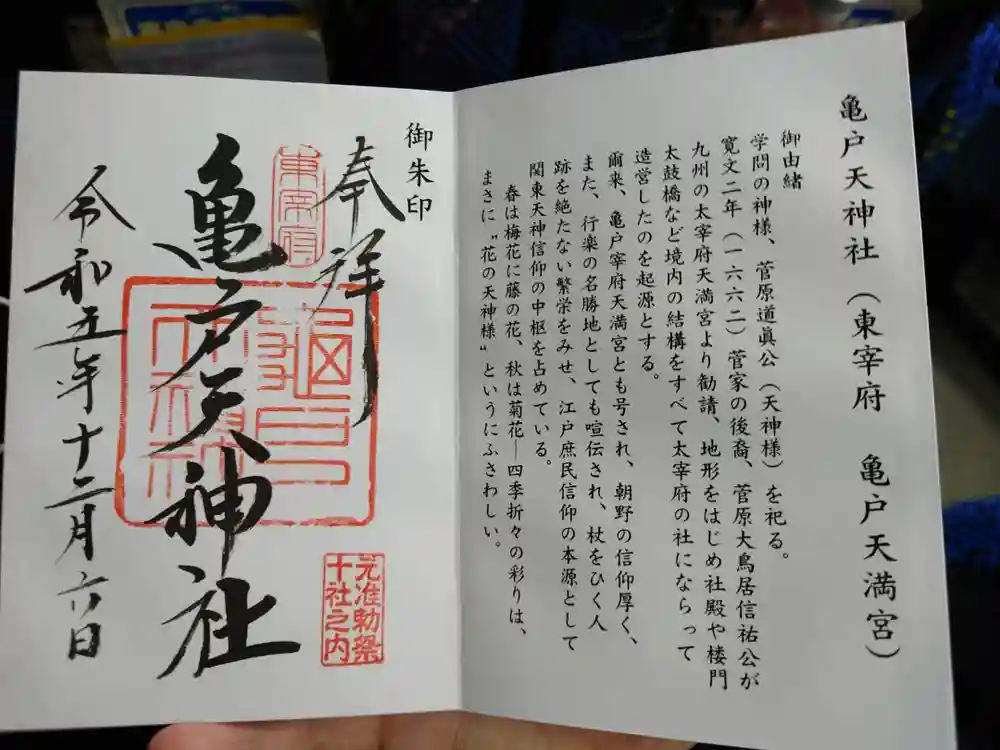 亀戸天神社（東宰府　亀戸天満宮）
御由緒
学問の神様、菅原道眞公（天神様）を祀る。
寛文二年（一六六二）菅家の後裔、菅原大鳥居信祐公が
九州の太宰府天満宮より勧請、地形をはじめ社殿や楼門
太鼓橋など境内の結構をすべて太宰府の社にならって
造営したのを起源とする。
爾来、亀戸宰府天満宮とも号され、朝野の信仰厚く、
また、行楽の名勝地としても喧伝され、杖をひく人
跡を絶たない繁栄をみせ、江戸庶民信仰の本源として
関東天神信仰の中枢を占めている。
春は梅花に藤の花、秋は菊花―四季折々の彩りは、
まさに〝花の天神様〟というにふさわしい。
御朱印
奉拝
東宰府
亀戸天神社
元准勅祭
十社之内
令和五年十二月六日